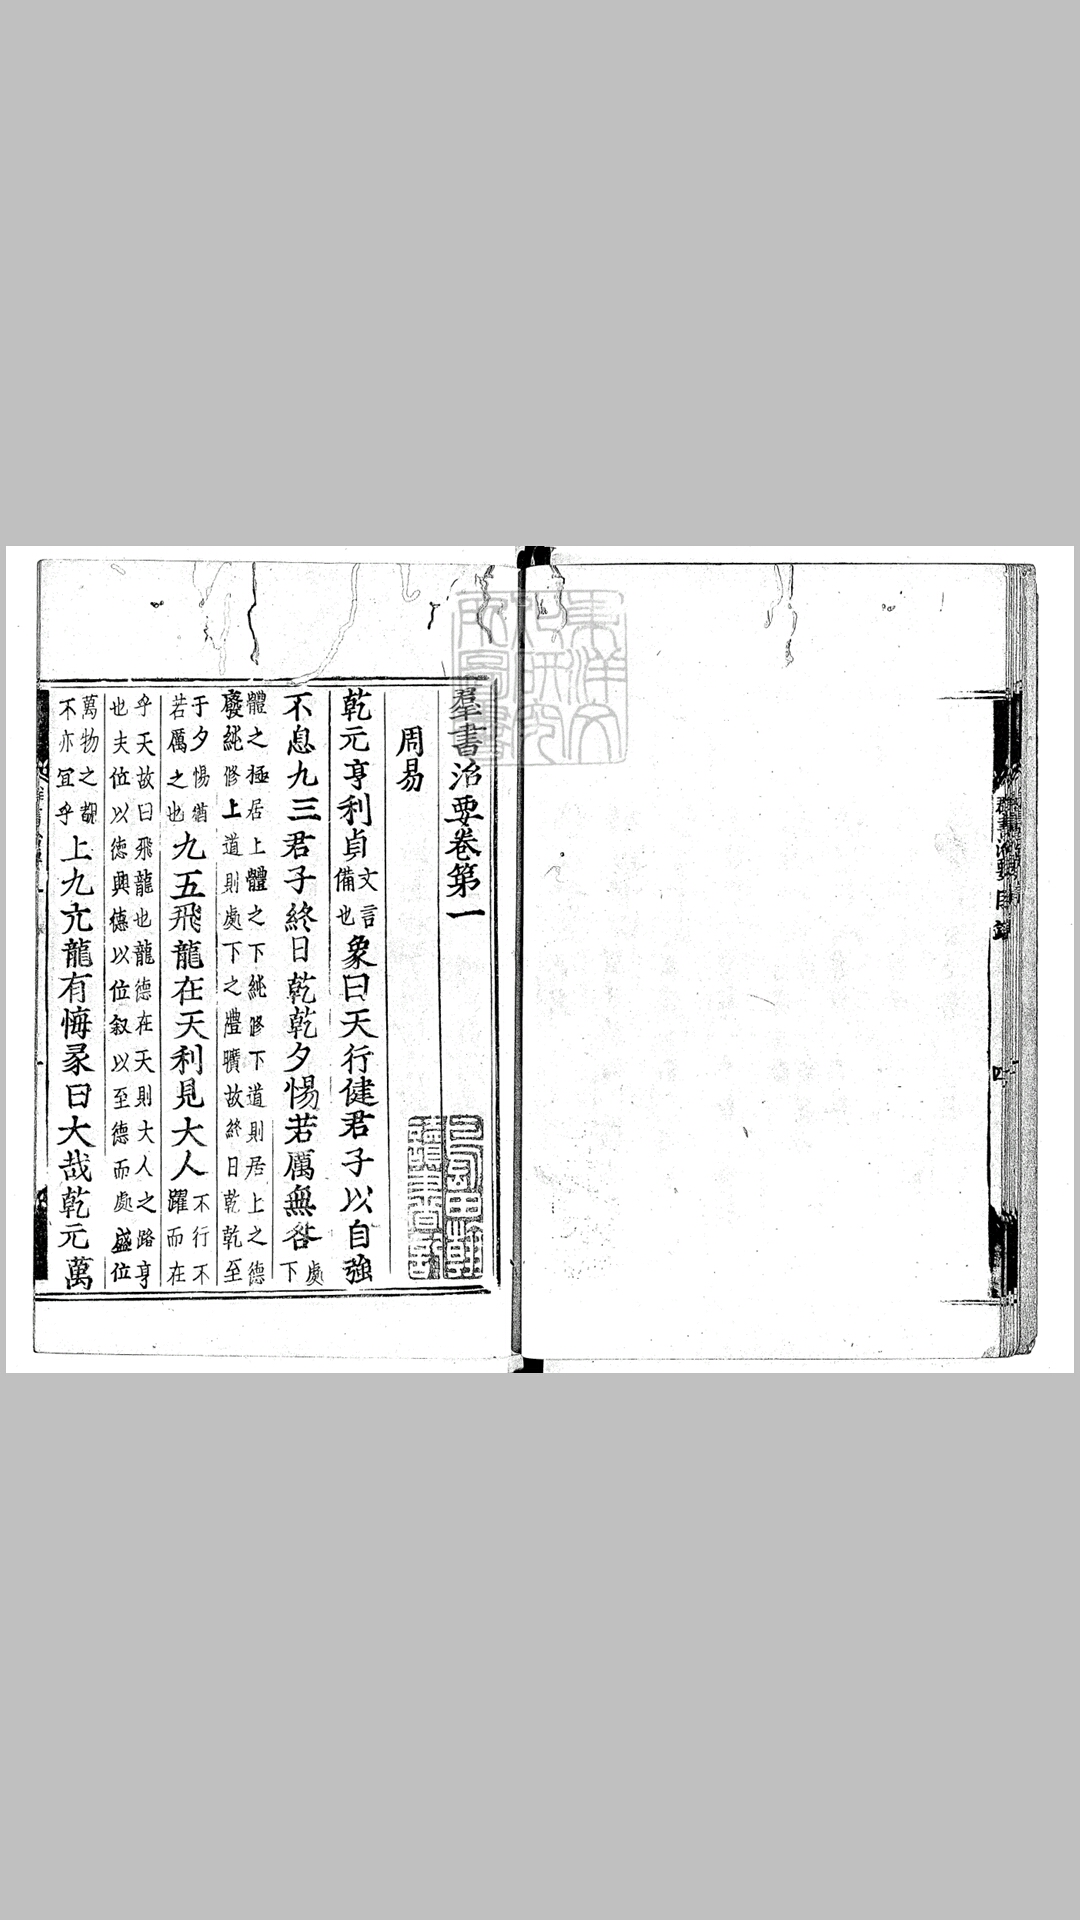 羣書治要卷第一
周易
乾元亨利貞文言備也象曰天行健君子以自強
不息九三君子終日乾乾夕惕若厲無咎處下
體之極居上體之下純修下道則居上之德
廢純修上道則處下之禮曠故終日乾乾至
于夕惕猶若厲之也九五飛龍在天利見大人不行不躍而在
乎天故曰飛龍也龍德在天則大人之路亨
也夫位以德興德以位叙以至德而處盛位
萬物之覩不亦宜乎上九亢龍有悔彖曰大哉乾元萬
東洋文化研究所圖書